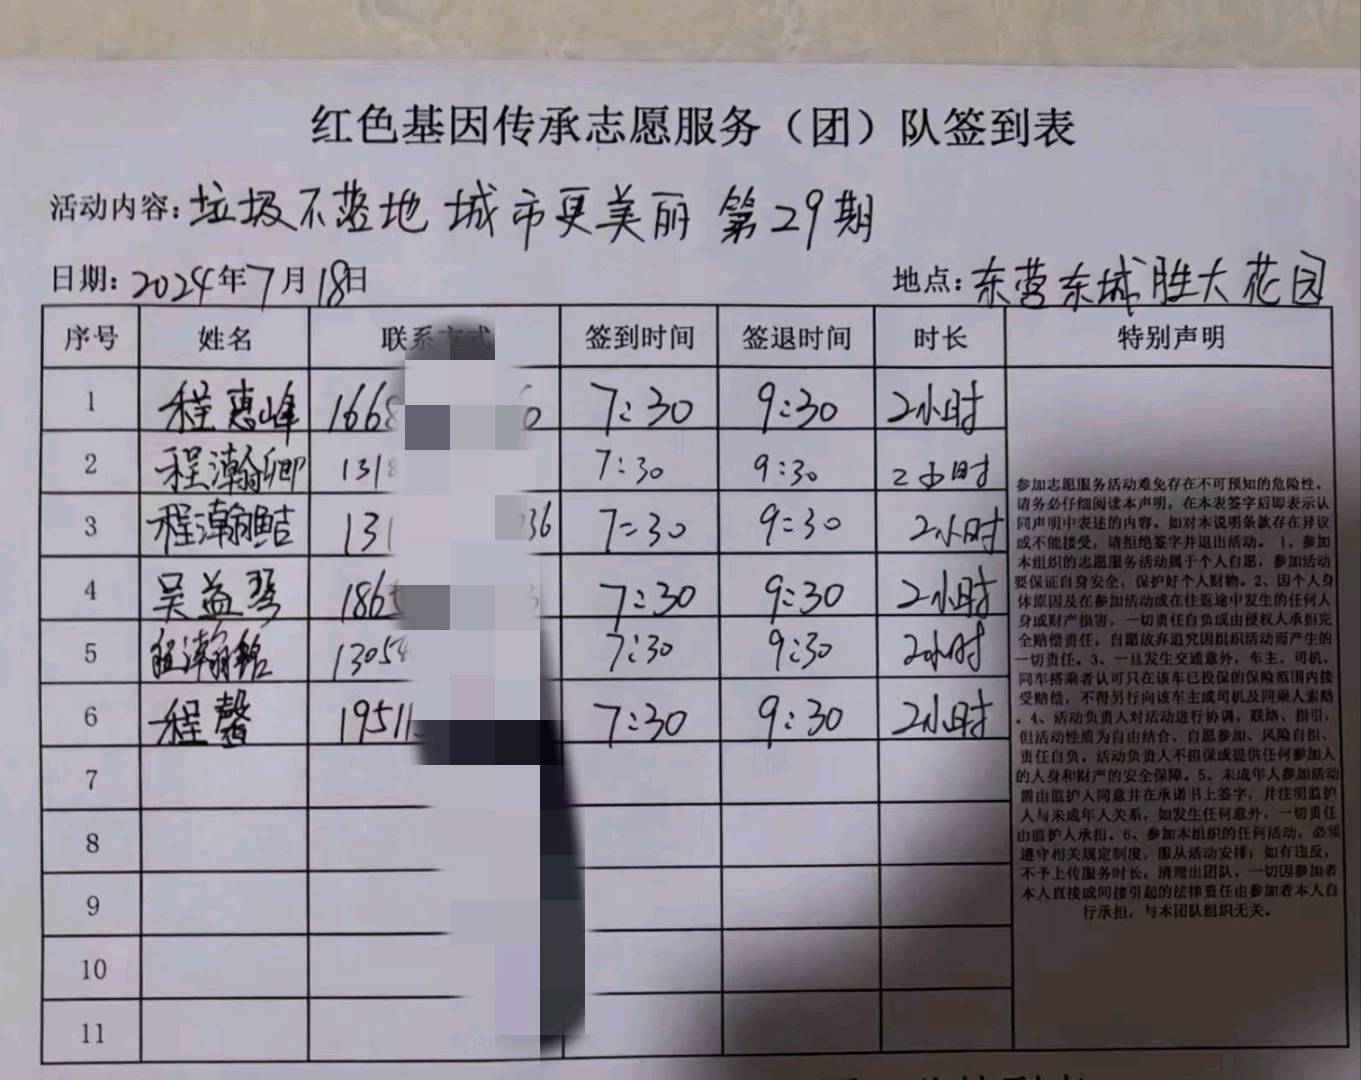 红色基因传承志愿服务（团）队签到表
活动内容：垃圾不落地 城市更美丽 第29期
日期：2024年7月18日 地点：东营东城胜大花园
序号 姓名 联系方式 签到时间 签退时间 时长 特别声明
1 程惠峰 1668 0 7:30 9:30 2小时
2 程瀚卿 131 7:30 9:30 2小时
3 程瀚鲒 131 36 7:30 9:30 2小时
4 吴益琴 186 7:30 9:30 2小时
5 程瀚铭 13054 7:30 9:30 2小时
6 程馨 19511 7:30 9:30 2小时
7
8
9
10
11
参加志愿服务活动难免存在不可预知的危险性，
请务必仔细阅读本声明，在本表签字后即表示认
同声明中表述的内容。如对本说明条款存在异议
或不能接受，请拒绝签字并退出活动。1、参加
本组织的志愿服务活动属于个人自愿，参加活动
要保证自身安全，保护好个人财物。2、因个人身
体原因及在参加活动或在往返途中发生的任何人
身或财产损害，一切责任自负或由侵权人承担完
全赔偿责任，自愿放弃追究因组织活动而产生的
一切责任。3、一旦发生交通意外，车主、司机、
同车搭乘者认可只在该车已投保的保险范围内接
受赔偿，不得另行向该车主或司机及同乘人索赔
。4、活动负责人对活动进行协调、联络、指引，
但活动性质为自由结合、自愿参加、风险自担、
责任自负。活动负责人不担保或提供任何参加人
的人身和财产的安全保障。5、未成年人参加活动
需由监护人同意并在承诺书上签字，并注明监护
人与未成年人关系，如发生任何意外，一切责任
由监护人承担。6、参加本组织的任何活动，必须
遵守相关规定制度，服从活动安排；如有违反，
不予上传服务时长，清理出团队，一切因参加者
本人直接或间接引起的法律责任由参加者本人自
行承担，与本团队组织无关。